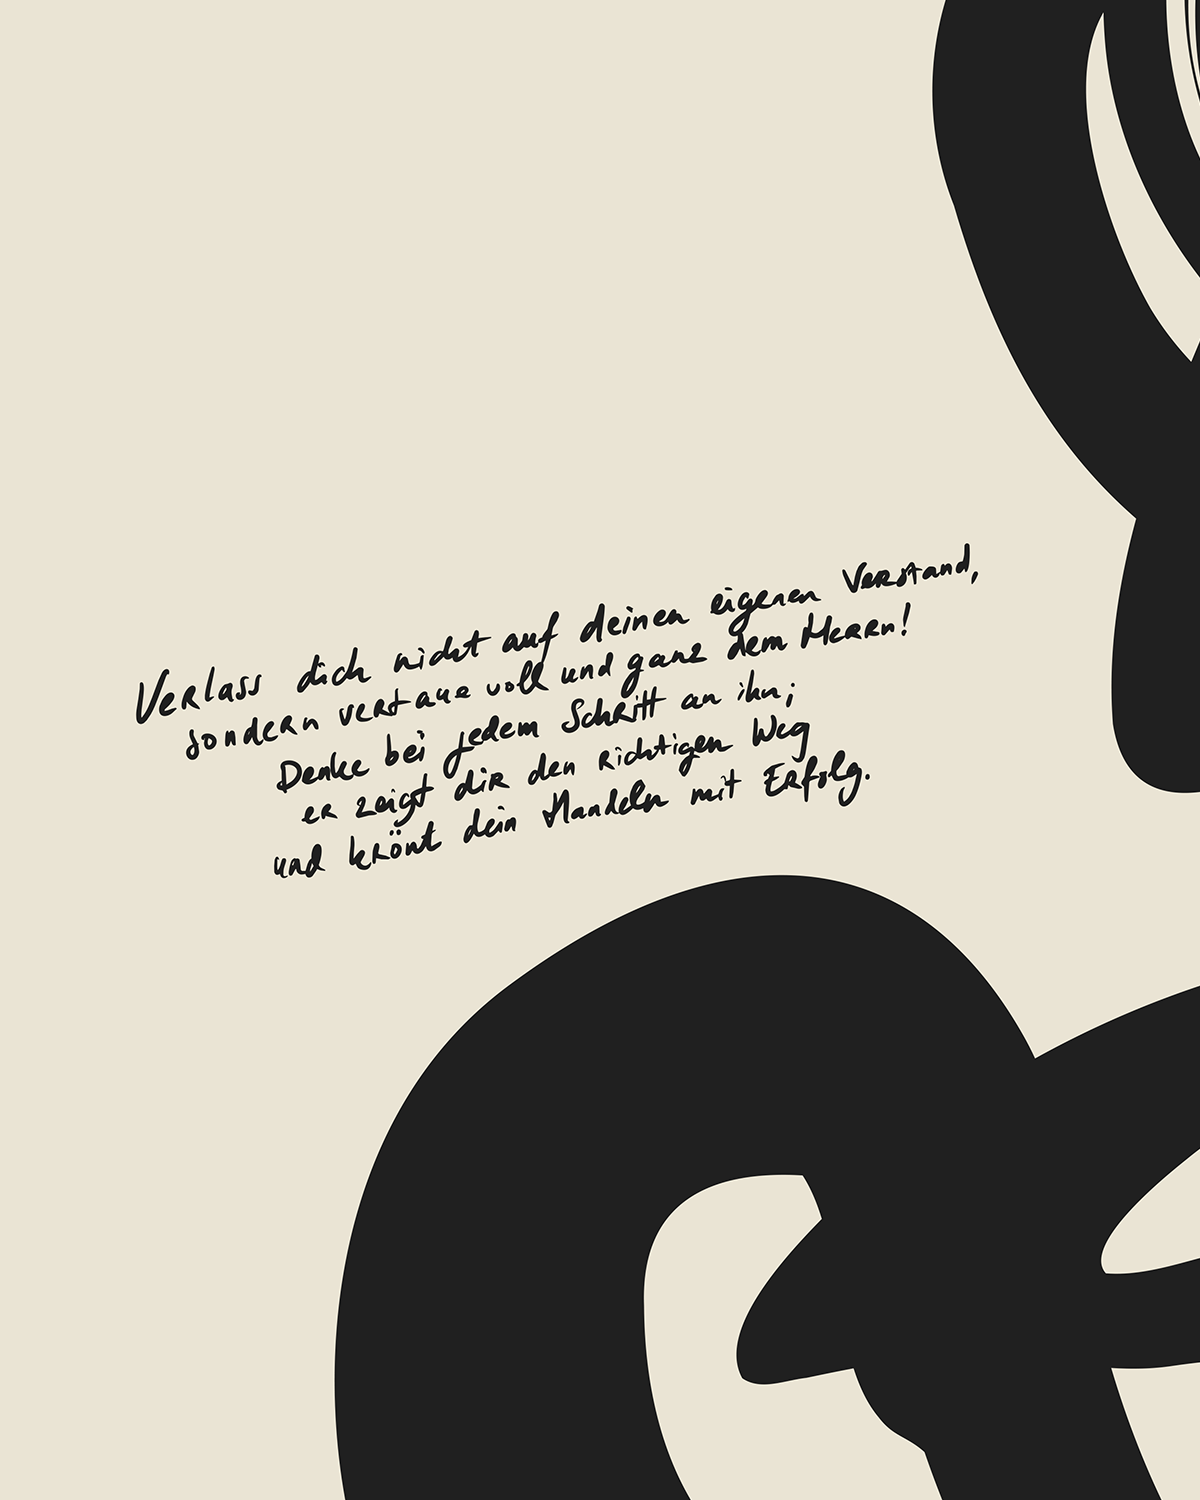 Verlass dich nicht auf deinen eigenen Verstand,
sondern vertaue voll und ganz dem Herrn!
Denke bei jedem Schritt an ihn;
er zeigt dir den richtigen Weg
und krönt dein Handeln mit Erfolg.